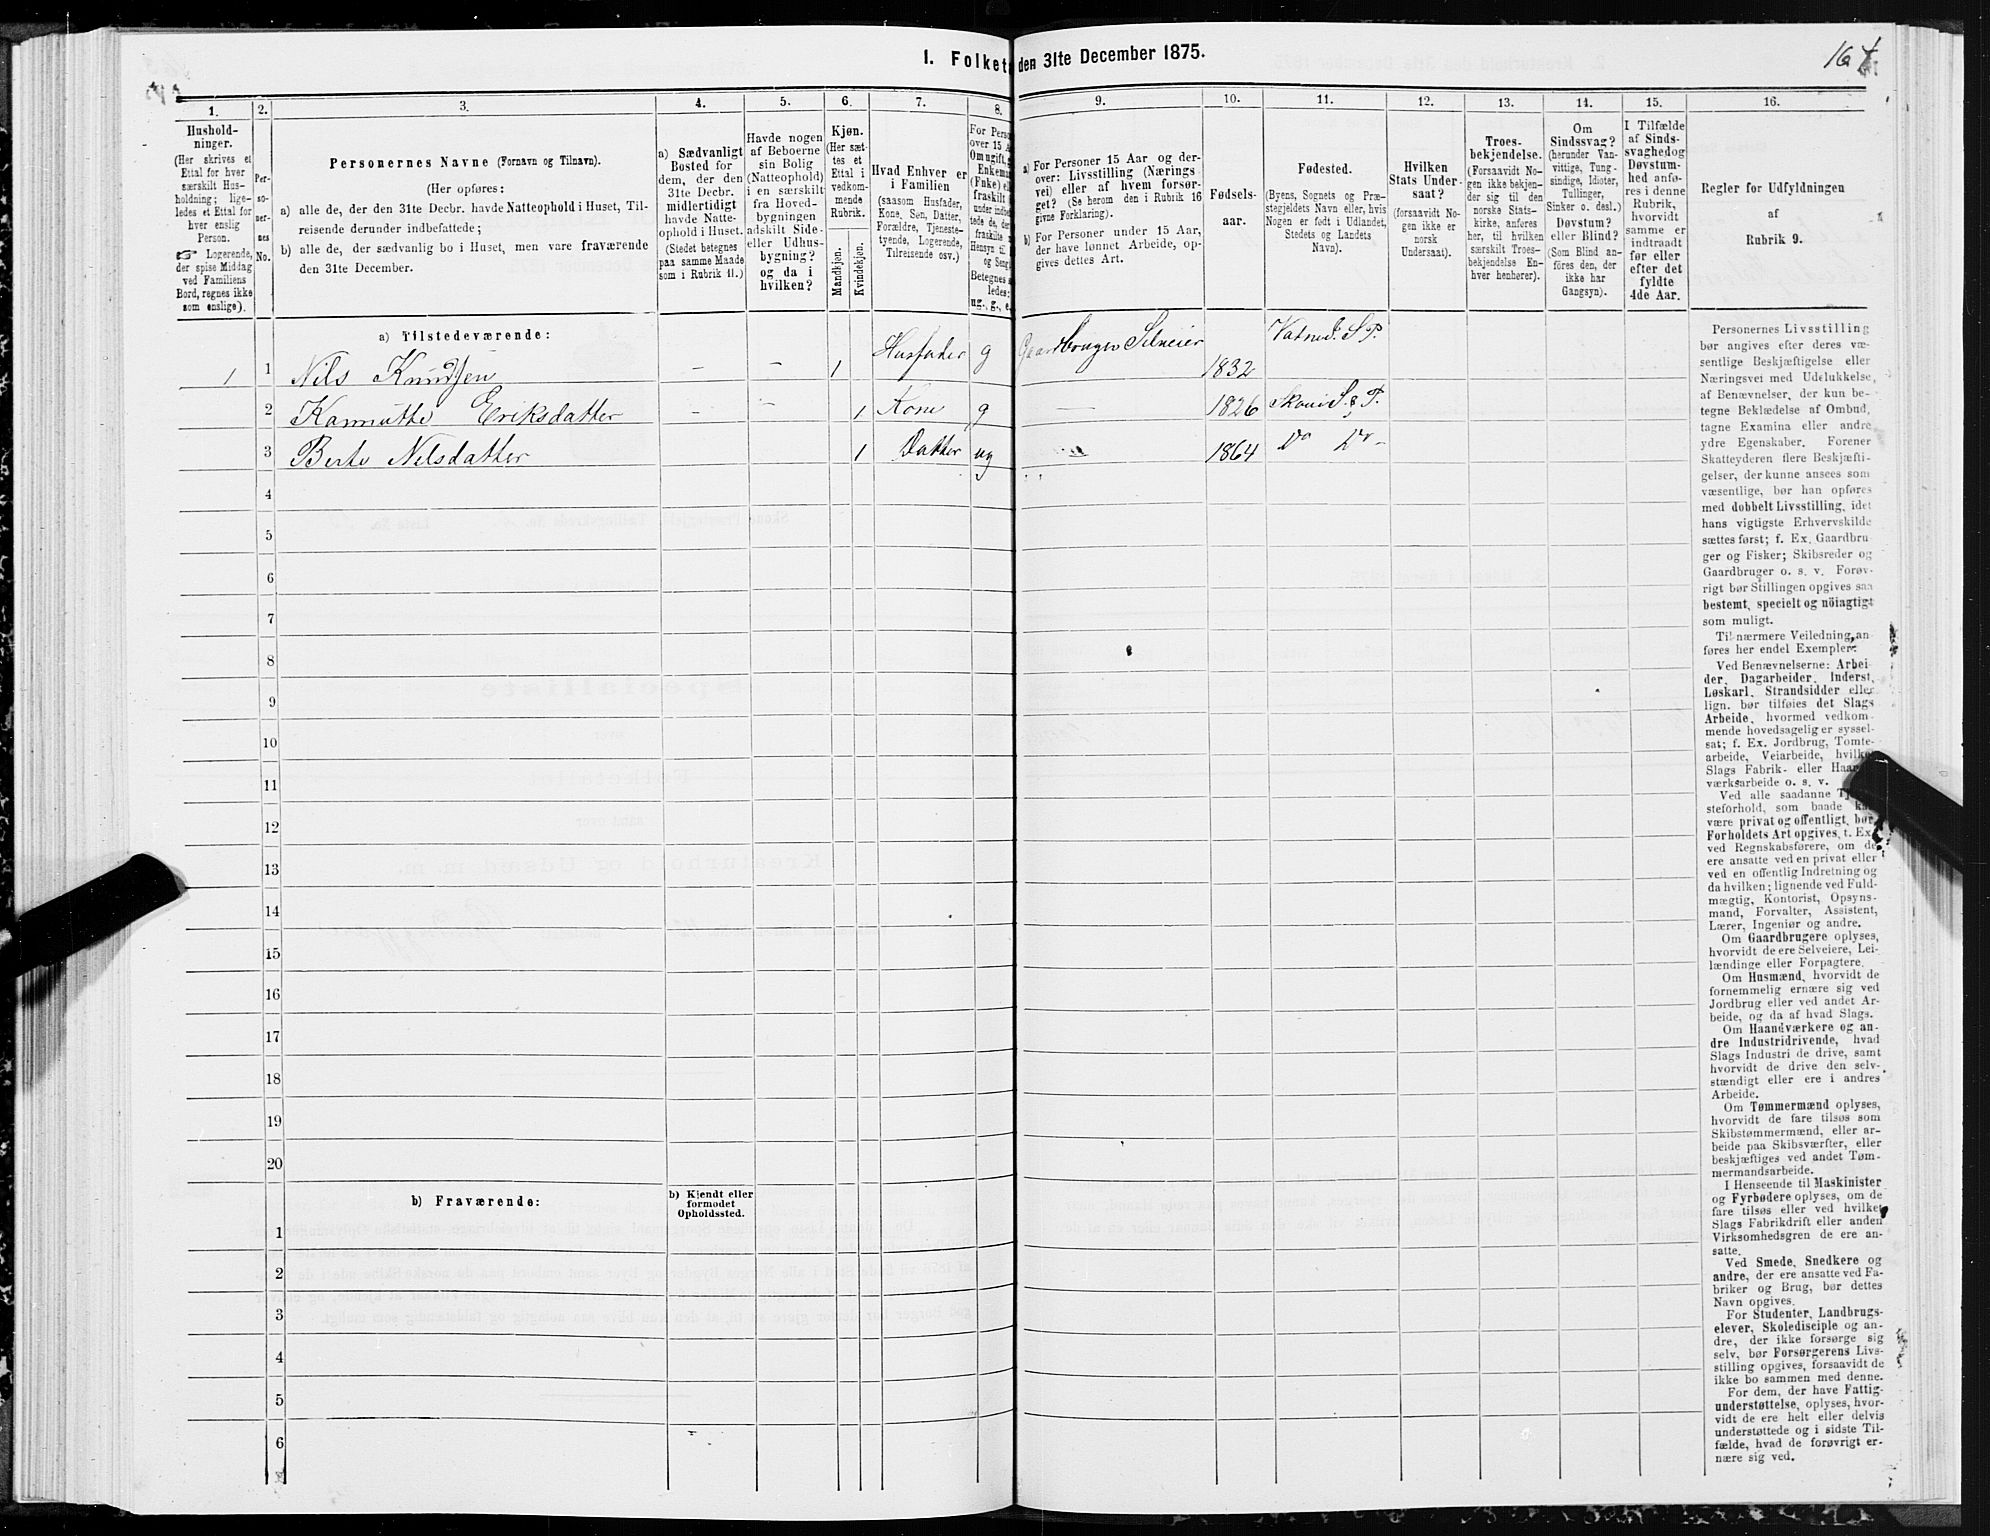 I. Folket
den 31te December 1875.
164
1.
2.
3.
4.
5.
6.
7.
8.
9.
10.
11.
12.
13.
14.
15.
16.
Hushold-
ninger.
(Her skrives et
Ettal for hver
særskilt Hus-
holdning; lige-
ledes et Ettal for
hver enslig
Person.
Logerende,
der spise Middag
ved Familiens
Bord, regnes ikke
som enslige).
Per-
so-
ner-
nes
No.
Personernes Navne (Fornavn og Tilnavn).
(Her opføres:
a) alle de, der den 31te Decbr. havde Natteophold i Huset, Til-
reisende derunder indbefattede;
b) alle de, der sædvanlig bo i Huset, men vare fraværende
den 31te December.
a) Sædvanligt
Bosted for
dem, der den
31te Decbr.
midlertidigt
havde Natte-
ophold i Huset.
(Stedet betegnes
paa samme Maade
som i Rubrik 11.)
Havde nogen
af Beboerne
sin Bolig
(Natteophold)
i en særskilt
fra Hoved-
bygningen
adskilt Side-
eller Udhus-
bygning?
og da i
hvilken?
Kjøn.
(Her sæt-
tes et
Ettal i
vedkom-
mende
Rubrik.
Mandkjøn.
Kvindekjøn.
Hvad Enhver er
i Familien
(saasom Husfader,
Kone, Søn, Datter,
Forældre, Tjeneste-
tyende, Logerende,
Tilreisende osv.)
For Perso
over 15 A
Om ugift, g
Enkema
(Enke) el
fraskilt
under indbe
tede de, der
fraskilte
Hensyn til
og Seng
Betegnes s
ledes:
ug., g., e.
a) For Personer 15 Aar og der-
over: Livsstilling (Nærings-
vei) eller af hvem forsør-
get? (Se herom den i Rubrik 16
givne Forklaring).
b) For Personer under 15 Aar,
der have lønnet Arbeide, op-
gives dettes Art.
Fødsels-
aar.
Fødested.
(Byens, Sognets og Præ-
stegjeldets Navn eller, hvis
Nogen er født i Udlandet,
Stedets og Landets
Navn).
Hvilken
Stats Under-
saat?
(forsaavidt No-
gen ikke er
norsk
Undersaat).
Troes-
bekjendelse.
(Forsaavidt No-
gen ikke bekjen-
der sig til den
norske Stats-
kirke, anføres
her, til hvilken
særskilt Troes-
bekjendelse En-
hver henhører).
Om
Sindssvag?
(herunder Van-
vittige, Tung-
sindige, Idioter,
Tullinger,
Sinker o. desl.)
Døvstum?
eller Blind?
(Som Blind an-
føres den, der
ikke har
Gangsyn).
I Tilfælde
af Sinds-
svaghed og
Døvstum-
hed anfø-
res i denne
Rubrik,
hvorvidt
samme er
indtraadt
før eller
efter det
fyldte
4de Aar.
Regler for Udfyldningen
af
Rubrik 9.
a) Tilstedeværende:
1 1 Nils Knudsen – – 1 Husfader g Gaardbruger Selveier 1832 S. P.
2 Eriksdatter – – 1 Kone g — 1826 S. & P.
3 Berte Nilsdatter 1 Datter ug 1864 Do Do
4
5
6
7
8
9
10
11
12
13
14
15
16
17
18
19
20
b) Fraværende:
b) Kjendt eller
formodet
Opholdssted.
1
2
3
4
5
6
Personernes Livsstilling
bør angives efter deres væ-
sentlige Beskjæftigelse eller
Næringsvei med Udelukkelse,
af Benævnelser, der kun be-
tegne Beklædelse af Ombud,
tagne Examina eller andre
ydre Egenskaber. Forener
Skatteyderen flere Beskjæfti-
gelser, der kunne ansees som
væsentlige, bør han opføres
med dobbelt Livsstilling, idet
hans vigtigste Erhvervskilde
sættes først; f. Ex. Gaardbru-
ger og Fisker; Skibsreder og
Gaardbruger o. s. v. Forøv-
rigt bør Stillingen opgives saa
bestemt, specielt og nöiagtigt
som muligt.
Til nærmere Veiledning an-
føres her endel Exempler:
Ved Benævnelserne: Arbei-
der, Dagarbeider, Inderst,
Løskarl, Strandsidder eller
lign. bør tilføies det Slags
Arbeide, hvormed vedkom-
mende hovedsagelig er syssel-
sat; f. Ex. Jordbrug, Tomte-
arbeide, Veiarbeide, hvilket
Slags Fabrik- eller Haand-
værksarbeide o. s. v.
Ved alle saadanne Tje
steforhold, som baade ka
være privat og offentligt, bør
Forholdets Art opgives, t. Ex.
ved Regnskabsførere, om de
ere ansatte ved en privat eller
ved en offentlig Indretning og
da hvilken; lignende ved Fuld-
mægtig, Kontorist, Opsyns-
mand, Forvalter, Assistent,
Lærer, Ingeniør og andre.
Om Gaardbrugere oplyses,
hvorvidt de ere Selveiere, Lei-
lændinge eller Forpagtere.
Om Husmænd, hvorvidt de
fornemmelig ernære sig ved
Jordbrug eller ved andet Ar-
beide, og da af hvad Slags.
Om Haandværkere og an-
dre Industridrivende, hvad
Slags Industri de drive, samt
hvorvidt de drive den selv-
stændigt eller ere i andres
Arbeide.
Om Tømmermænd oplyses,
hvorvidt de fare tilsøs som
Skibstømmermænd, eller ar-
beide paa Skibsværfter, eller
beskjæftiges ved andet Tøm-
mermandsarbeide.
I Henseende til Maskinister
og Fyrbødere oplyses, om de
fare tilsøs eller ved hvilket
Slags Fabrikdrift eller anden
Virksomhedsgren de ere an-
satte.
Ved Smede, Snedkere og
andre, der ere ansatte ved Fa-
briker og Brug, bør dettes
Navn opgives.
For Studenter, Landbrugs-
elever, Skoledisciple og an-
dre, der ikke forsørge sig
selv, bør Forsørgerens Livs-
stilling opgives, forsaavidt de
ikke bo sammen med denne.
For dem, der have Fattig-
understøttelse, oplyses, hvor-
vidt de ere helt eller delvis
understøttede og i sidste Til-
fælde, hvad de forøvrigt er-
nære sig ved.